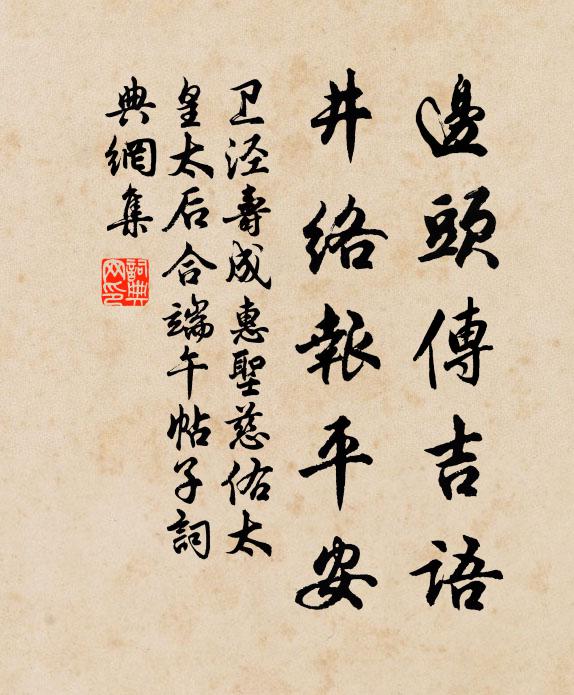 邊頭傳吉語
井絡報平安
卫涇壽成惠聖慈佑太
皇太后合端午帖子詞
典網集
詞典网印